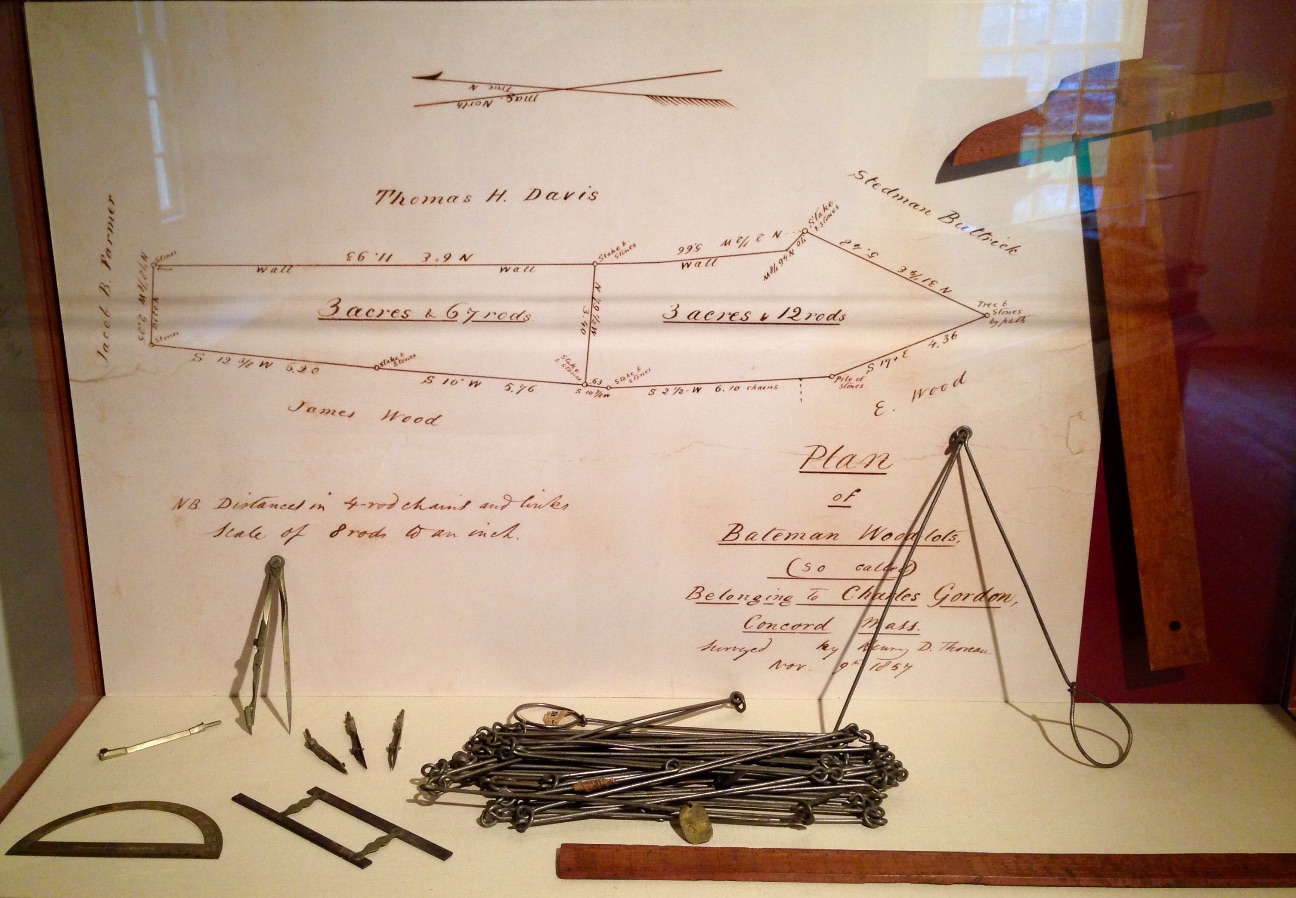 True N
Mag. North
Thomas H. Davis
Stedman Buttrick
Jacob B. Farmer
Stones
Wall
11.93
N 6° E
Wall
Stake &
Stones
Wall
5.66
N 2 1/2 W
Stake
& Stones
5.42
N 31 3/4 E
Tree &
Stones
by path
Ditch
2.35
3 acres & 67 rods
3.40
3 acres & 12 rods
Stones
S 12 3/4 W 6.20
Stake &
Stones
S 10° W 5.76
Stake
& Stones
.63
Stake &
Stones
S 2 1/2° W 6.10 chains
Pile of
Stones
S 17° E
4.36
James Wood
E. Wood
NB. Distances in 4-rod chains and links
Scale of 8 rods to an inch.
Plan
of
Bateman Woodlots,
(so called)
Belonging to Charles Gordon,
Concord Mass.
Surveyed by Henry D. Thoreau
Nov. 9th 1857